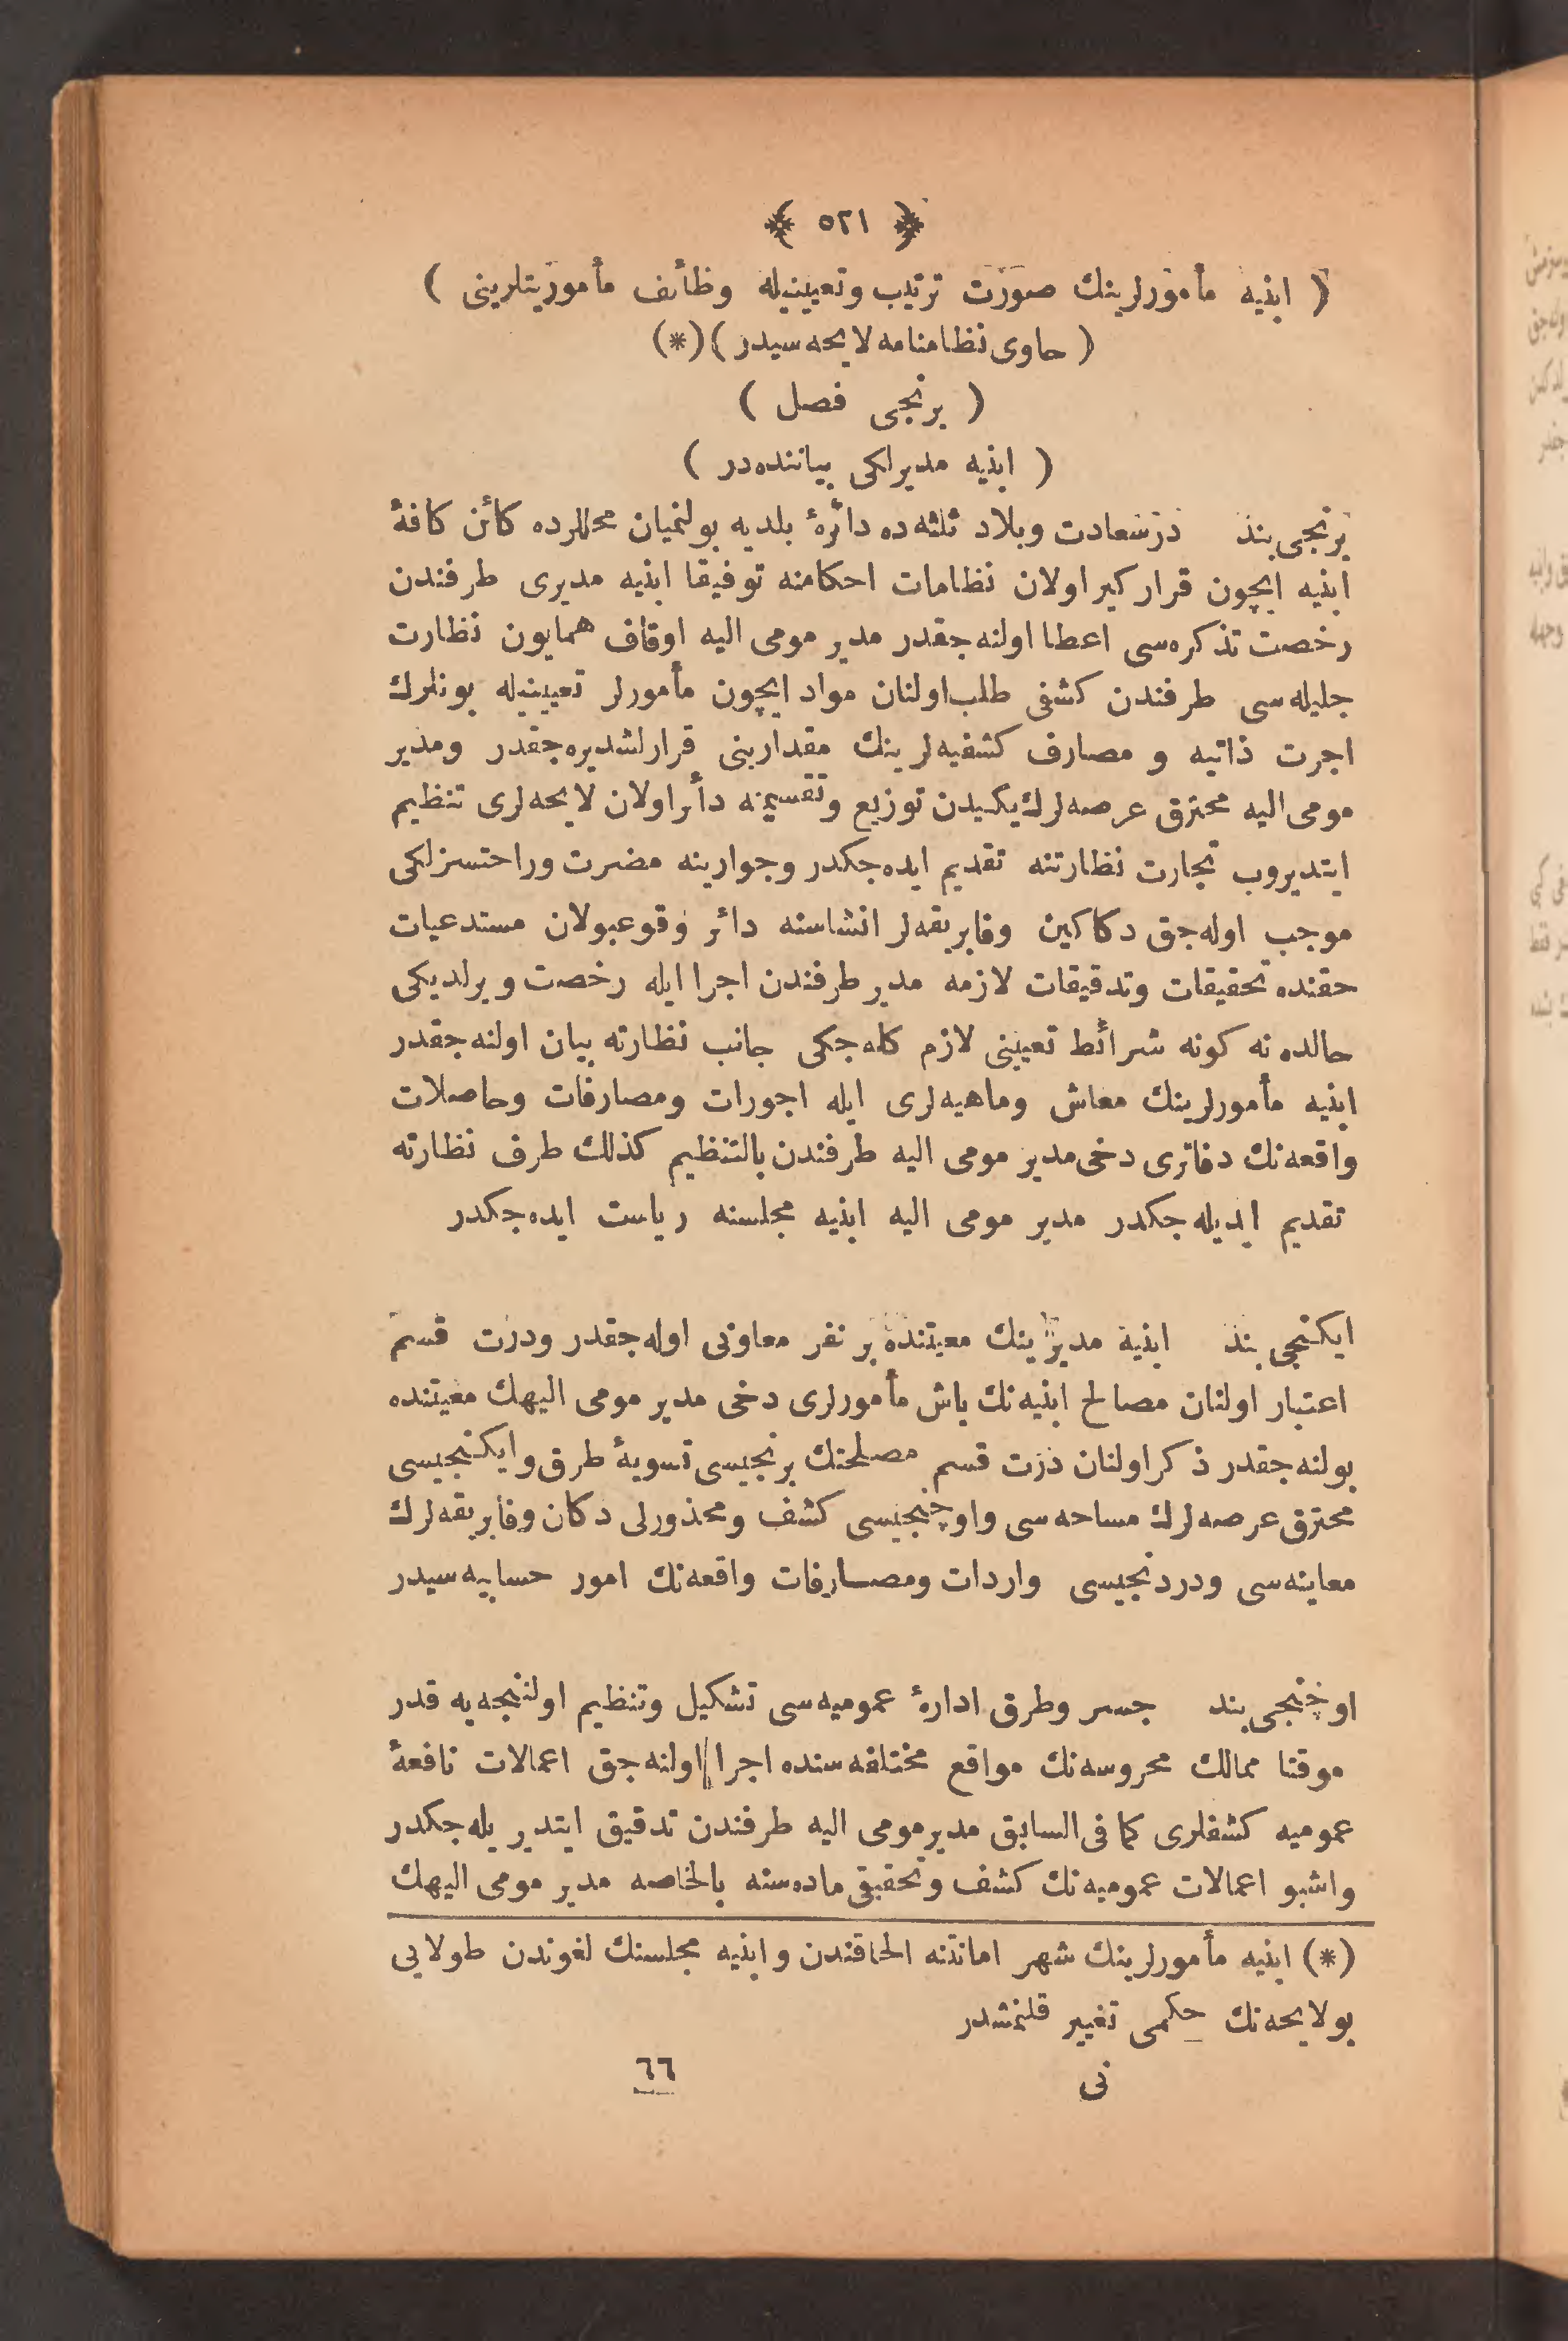 ﴿ ٥٢١ ﴾
( ابنیه مأمورلرینك صورت ترتیب وتعیینیله وظائف مأموریتلرینی )
( حاوی نظامنامه لایحه سیدر ) (*)
( برنجی فصل )
( ابنیه مدیرلكی بیاننده در )
برنجی بند درسعادت وبلاد ثلثه ده دائرۀ بلدیه بولنمیان محللرده كائن كافۀ
ابنیه ایچون قرار كیر اولان نظامات احكامنه توفیقا ابنیه مدیری طرفندن
رخصت تذكره سی اعطا اولنه جقدر مدیر مومی الیه اوقاف همایون نظارت
جلیله سی طرفندن كشفی طلب اولنان مواد ایچون مأمورلر تعیینیله بونلرك
اجرت ذاتیه و مصارف كشفیه لرینك مقدارینی قرارلشدیره جقدر ومدیر
مومی الیه محترق عرصه لرك یكیدن توزیع وتقسیمنه دأر اولان لایحه لری تنظیم
ایتدیروب تجارت نظارتنه تقدیم ایده جكدر وجوارینه مضرت وراحتسزلكی
موجب اوله جق دكاكین وفابریقه لر انشاسنه دائر وقوعبولان مستدعیات
حقنده تحقیقات وتدقیقات لازمه مدیر طرفندن اجرا ایله رخصت ویرلدیكی
حالده نه كونه شرائط تعیینی لازم كله جكی جانب نظارته بیان اولنه جقدر
ابنیه مأمورلرینك معاش وماهیه لری ایله اجورات ومصارفات وحاصلات
واقعه نك دفاتری دخی مدیر مومی الیه طرفندن بالتنظیم كذلك طرف نظارته
تقدیم ایدیله جكدر مدیر مومی الیه ابنیه مجلسنه ریاست ایده جكدر
ایكنجی بند ابنیه مدیرینك معیتنده بر نفر معاونی اوله جقدر ودرت قسم
اعتبار اولنان مصالح ابنیه نك باش مأمورلری دخی مدیر مومی الیهك معیتنده
بولنه جقدر ذكر اولنان درت قسم مصلحتك برنجیسی تسویۀ طرق وایكنجیسی
محترق عرصه لرك مساحه سی واوچنجیسی كشف ومحذورلی دكان وفابریقه لرك
معاینه سی ودردنجیسی واردات ومصاریفات واقعه نك امور حسابیه سیدر
اوچنجی بند جسر وطرق ادارۀ عمومیه سی تشكیل وتنظیم اولننجه یه قدر
موقتا ممالك محروسه نك مواقع مختلفه سنده اجرا اولنه جق اعمالات نافعۀ
عمومیه كشفلری كما فی السابق مدیر مومی الیه طرفندن تدقیق ایتدیریله جكدر
واشبو اعمالات عمومیه نك كشف وتحقیقی ماده سنه بالخاصه مدیر مومی الیهك
(*) ابنیه مأمورلرینك شهر امانتنه الحاقندن وابنیه مجلسنك لغوندن طولایی
بولایحه نك حكمی تغییر قلنمشدر
٦٦ نی